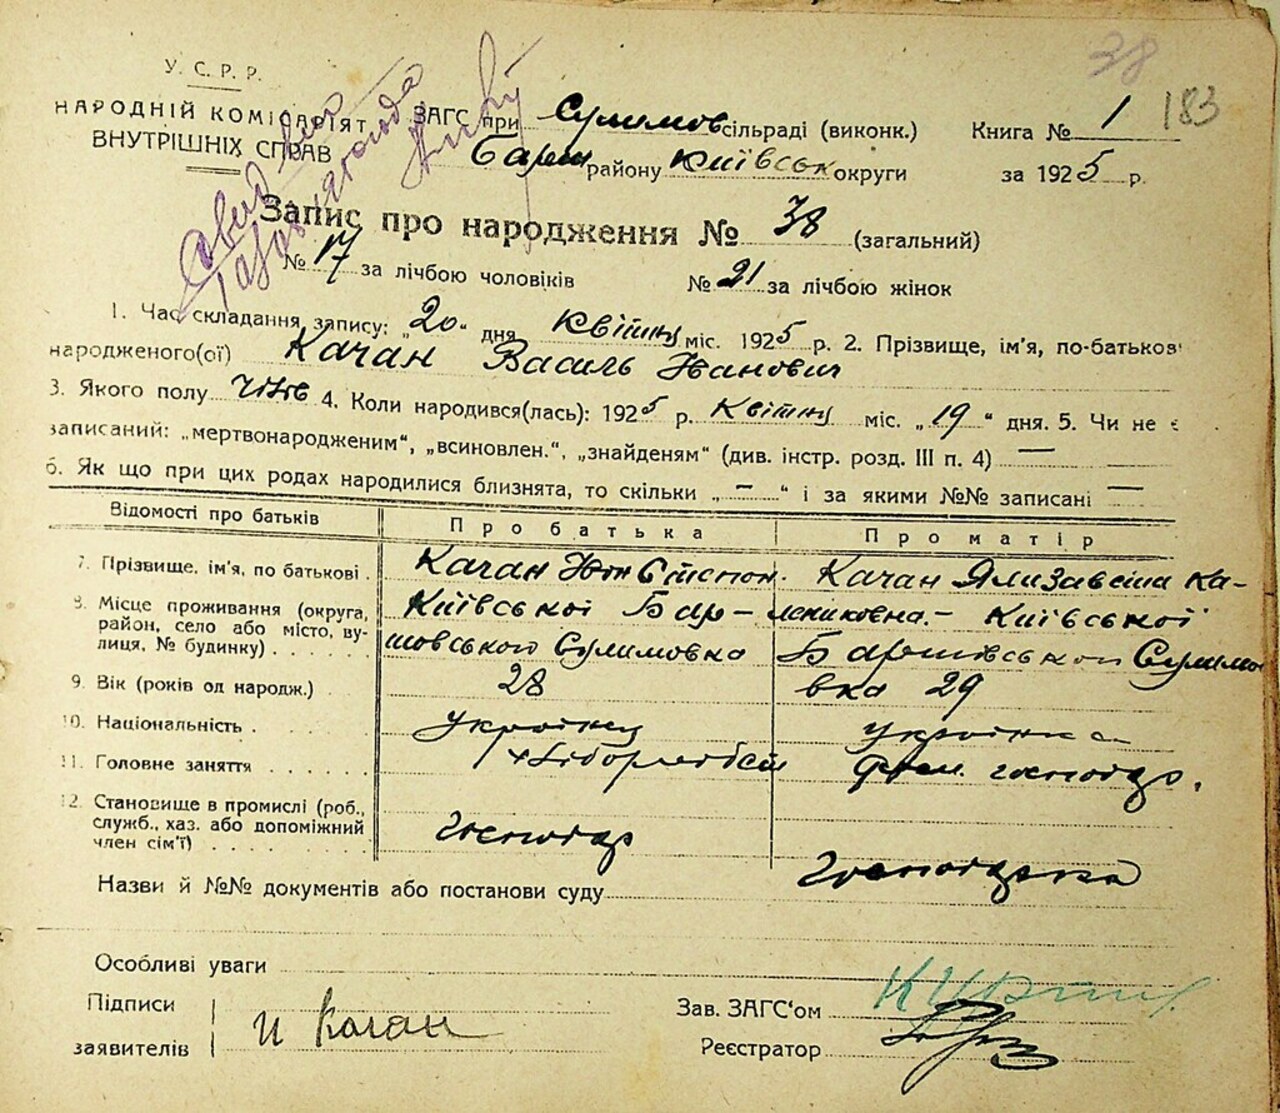 38
183
У. С. Р. Р.
НАРОДНІЙ КОМІСАРІЯТ
ВНУТРІШНІХ СПРАВ
ЗАГС при Сулимов сільраді (виконк.) Книга № 1
Бариш району Київськ округи за 1925 р.
Запис про народження № 38 (загальний)
№ 17 за лічбою чоловіків № 21 за лічбою жінок
1. Час складання запису: „20“ дня Квітня міс. 1925 р. 2. Прізвище, ім'я, по-батькові
народженого(ої) Качан Василь Іванович
3. Якого полу чолов 4. Коли народився(лась): 1925 р. Квітня міс. „19“ дня. 5. Чи не є
записаний: „мертвонародженим“, „всиновлен.“, „знайденям“ (див. інстр. розд. III п. 4) —
6. Як що при цих родах народилися близнята, то скільки „—“ і за якими №№ записані —
Відомості про батьків Про батька Про матір
7. Прізвище, ім'я, по батькові . Качан Степон. Качан Ялизавета Ка-
8. Місце проживання (округа, Київської Бар- лениковна.- Київської
район, село або місто, ву-
лиця, № будинку) . . . . . шовського Сулимовка Баришівського Сулимо
9. Вік (років од народж.) . 28 вка 29
10. Національність . українец українка
11. Головне заняття . . . . . . Хліборобст дом. господар.
12. Становище в промислі (роб.,
служб., хаз. або допоміжний
член сім'ї) . . . . . господар
господарка
Назви й №№ документів або постанови суду
Особливі уваги
Підписи
заявителів И Качан
Зав. ЗАГС‘ом
Реєстратор